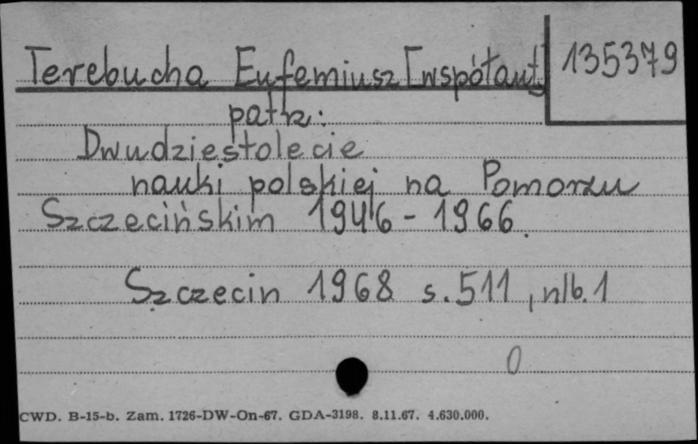 Terebucha Eufemiusz [współaut]
135379
patrz:
Dwudziestolecie
nauki polskiej na Pomorzu
Szczecińskim 1946-1966.
Szczecin 1968 s. 511, nlb. 1
0
CWD. B-15-b. Zam. 1726-DW-On-67. GDA-3198. 8.11.67. 4.630.000.